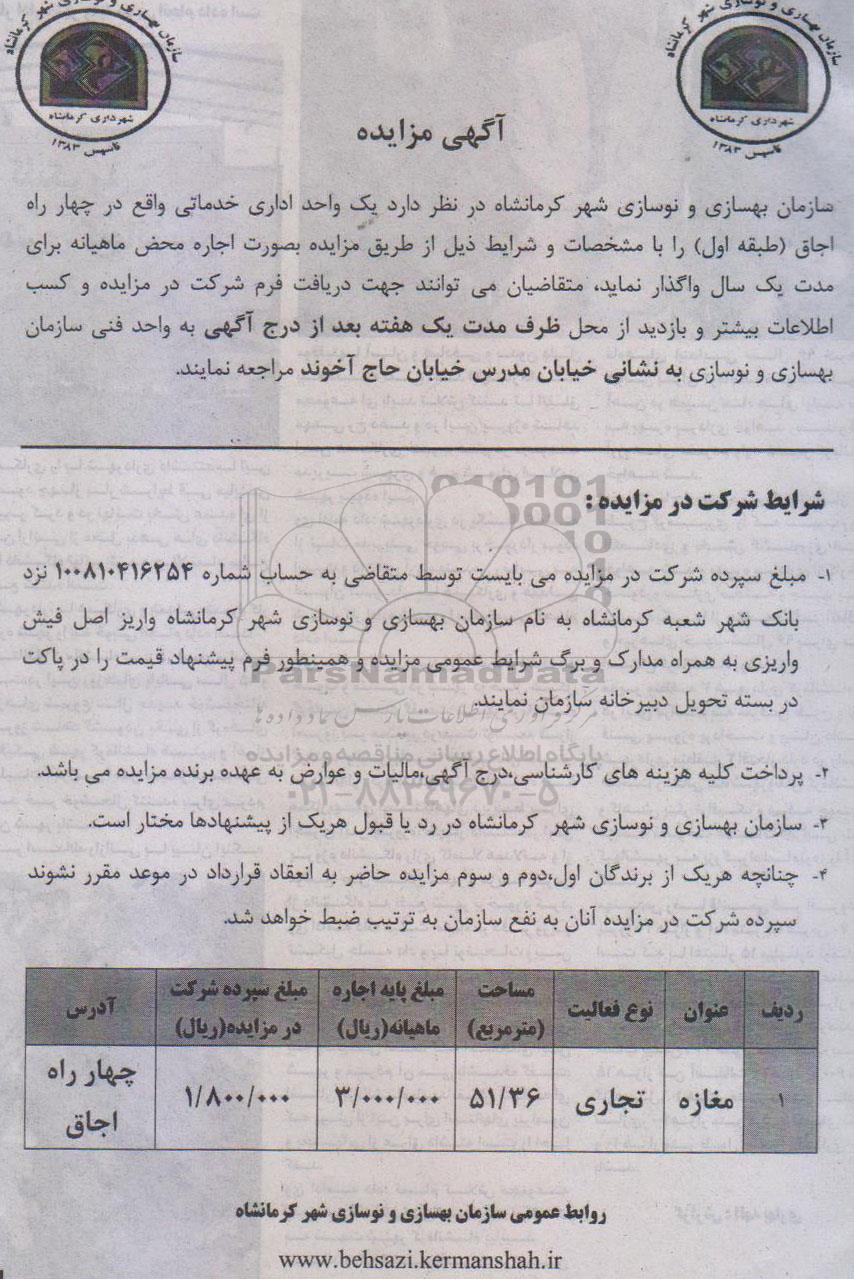 سازمان بهسازی و نوسازی شهر کرمانشاه
شهرداری کرمانشاه
تاسیس ۱۳۸۳
سازمان بهسازی و نوسازی شهر کرمانشاه
شهرداری کرمانشاه
تاسیس ۱۳۸۳
آگهی مزایده
سازمان بهسازی و نوسازی شهر کرمانشاه در نظر دارد یک واحد اداری خدماتی واقع در چهار راه
اجاق (طبقه اول) را با مشخصات و شرایط ذیل از طریق مزایده بصورت اجاره محض ماهیانه برای
مدت یک سال واگذار نماید، متقاضیان می توانند جهت دریافت فرم شرکت در مزایده و کسب
اطلاعات بیشتر و بازدید از محل ظرف مدت یک هفته بعد از درج آگهی به واحد فنی سازمان
بهسازی و نوسازی به نشانی خیابان مدرس خیابان حاج آخوند مراجعه نمایند.
شرایط شرکت در مزایده :
۱- مبلغ سپرده شرکت در مزایده می بایست توسط متقاضی به حساب شماره ۱۰۰۸۱۰۴۱۶۲۵۴ نزد
بانک شهر شعبه کرمانشاه به نام سازمان بهسازی و نوسازی شهر کرمانشاه واریز اصل فیش
واریزی به همراه مدارک و برگ شرایط عمومی مزایده و همینطور فرم پیشنهاد قیمت را در پاکت
در بسته تحویل دبیرخانه سازمان نمایند.
ParsNamadData
مرکز فرآوری اطلاعات پارس نماد داده ها
پایگاه اطلاع رسانی مناقصه و مزایده
۲- پرداخت کلیه هزینه های کارشناسی،درج آگهی،مالیات و عوارض به عهده برنده مزایده می باشد.
۰۲۱-۸۸۳۴۹۶۷۰-۵
۳- سازمان بهسازی و نوسازی شهر کرمانشاه در رد یا قبول هریک از پیشنهادها مختار است.
۴- چنانچه هریک از برندگان اول،دوم و سوم مزایده حاضر به انعقاد قرارداد در موعد مقرر نشوند
سپرده شرکت در مزایده آنان به نفع سازمان به ترتیب ضبط خواهد شد.
ردیف عنوان نوع فعالیت مساحت (مترمربع) مبلغ پایه اجاره ماهیانه(ریال) مبلغ سپرده شرکت در مزایده(ریال) آدرس
۱ مغازه تجاری ۵۱/۳۶ ۳/۰۰۰/۰۰۰ ۱/۸۰۰/۰۰۰ چهار راه اجاق
روابط عمومی سازمان بهسازی و نوسازی شهر کرمانشاه
www.behsazi.kermanshah.ir